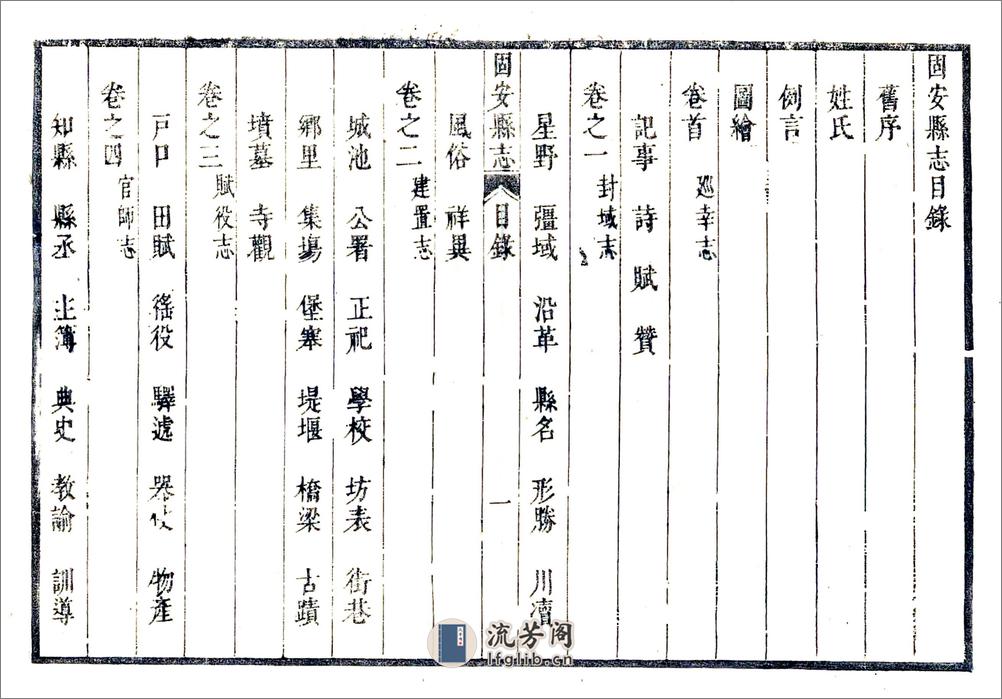 固安縣志目錄
舊序
姓氏
例言
圖繪
卷首 巡幸志
記事 詩 賦 贊
卷之一 封域志
星野 疆域 沿革 縣名 形勝 川瀆
固安縣志 目錄 一
風俗 祥異
卷之二 建置志
城池 公署 正祀 學校 坊表 街巷
鄉里 集場 堡寨 堤堰 橋梁 古蹟
墳墓 寺觀
卷之三 賦役志
戶口 田賦 徭役 驛遞 物產
卷之四 官師志
知縣 縣丞 主簿 典史 教諭 訓導
流芳阁
lfglib.cn